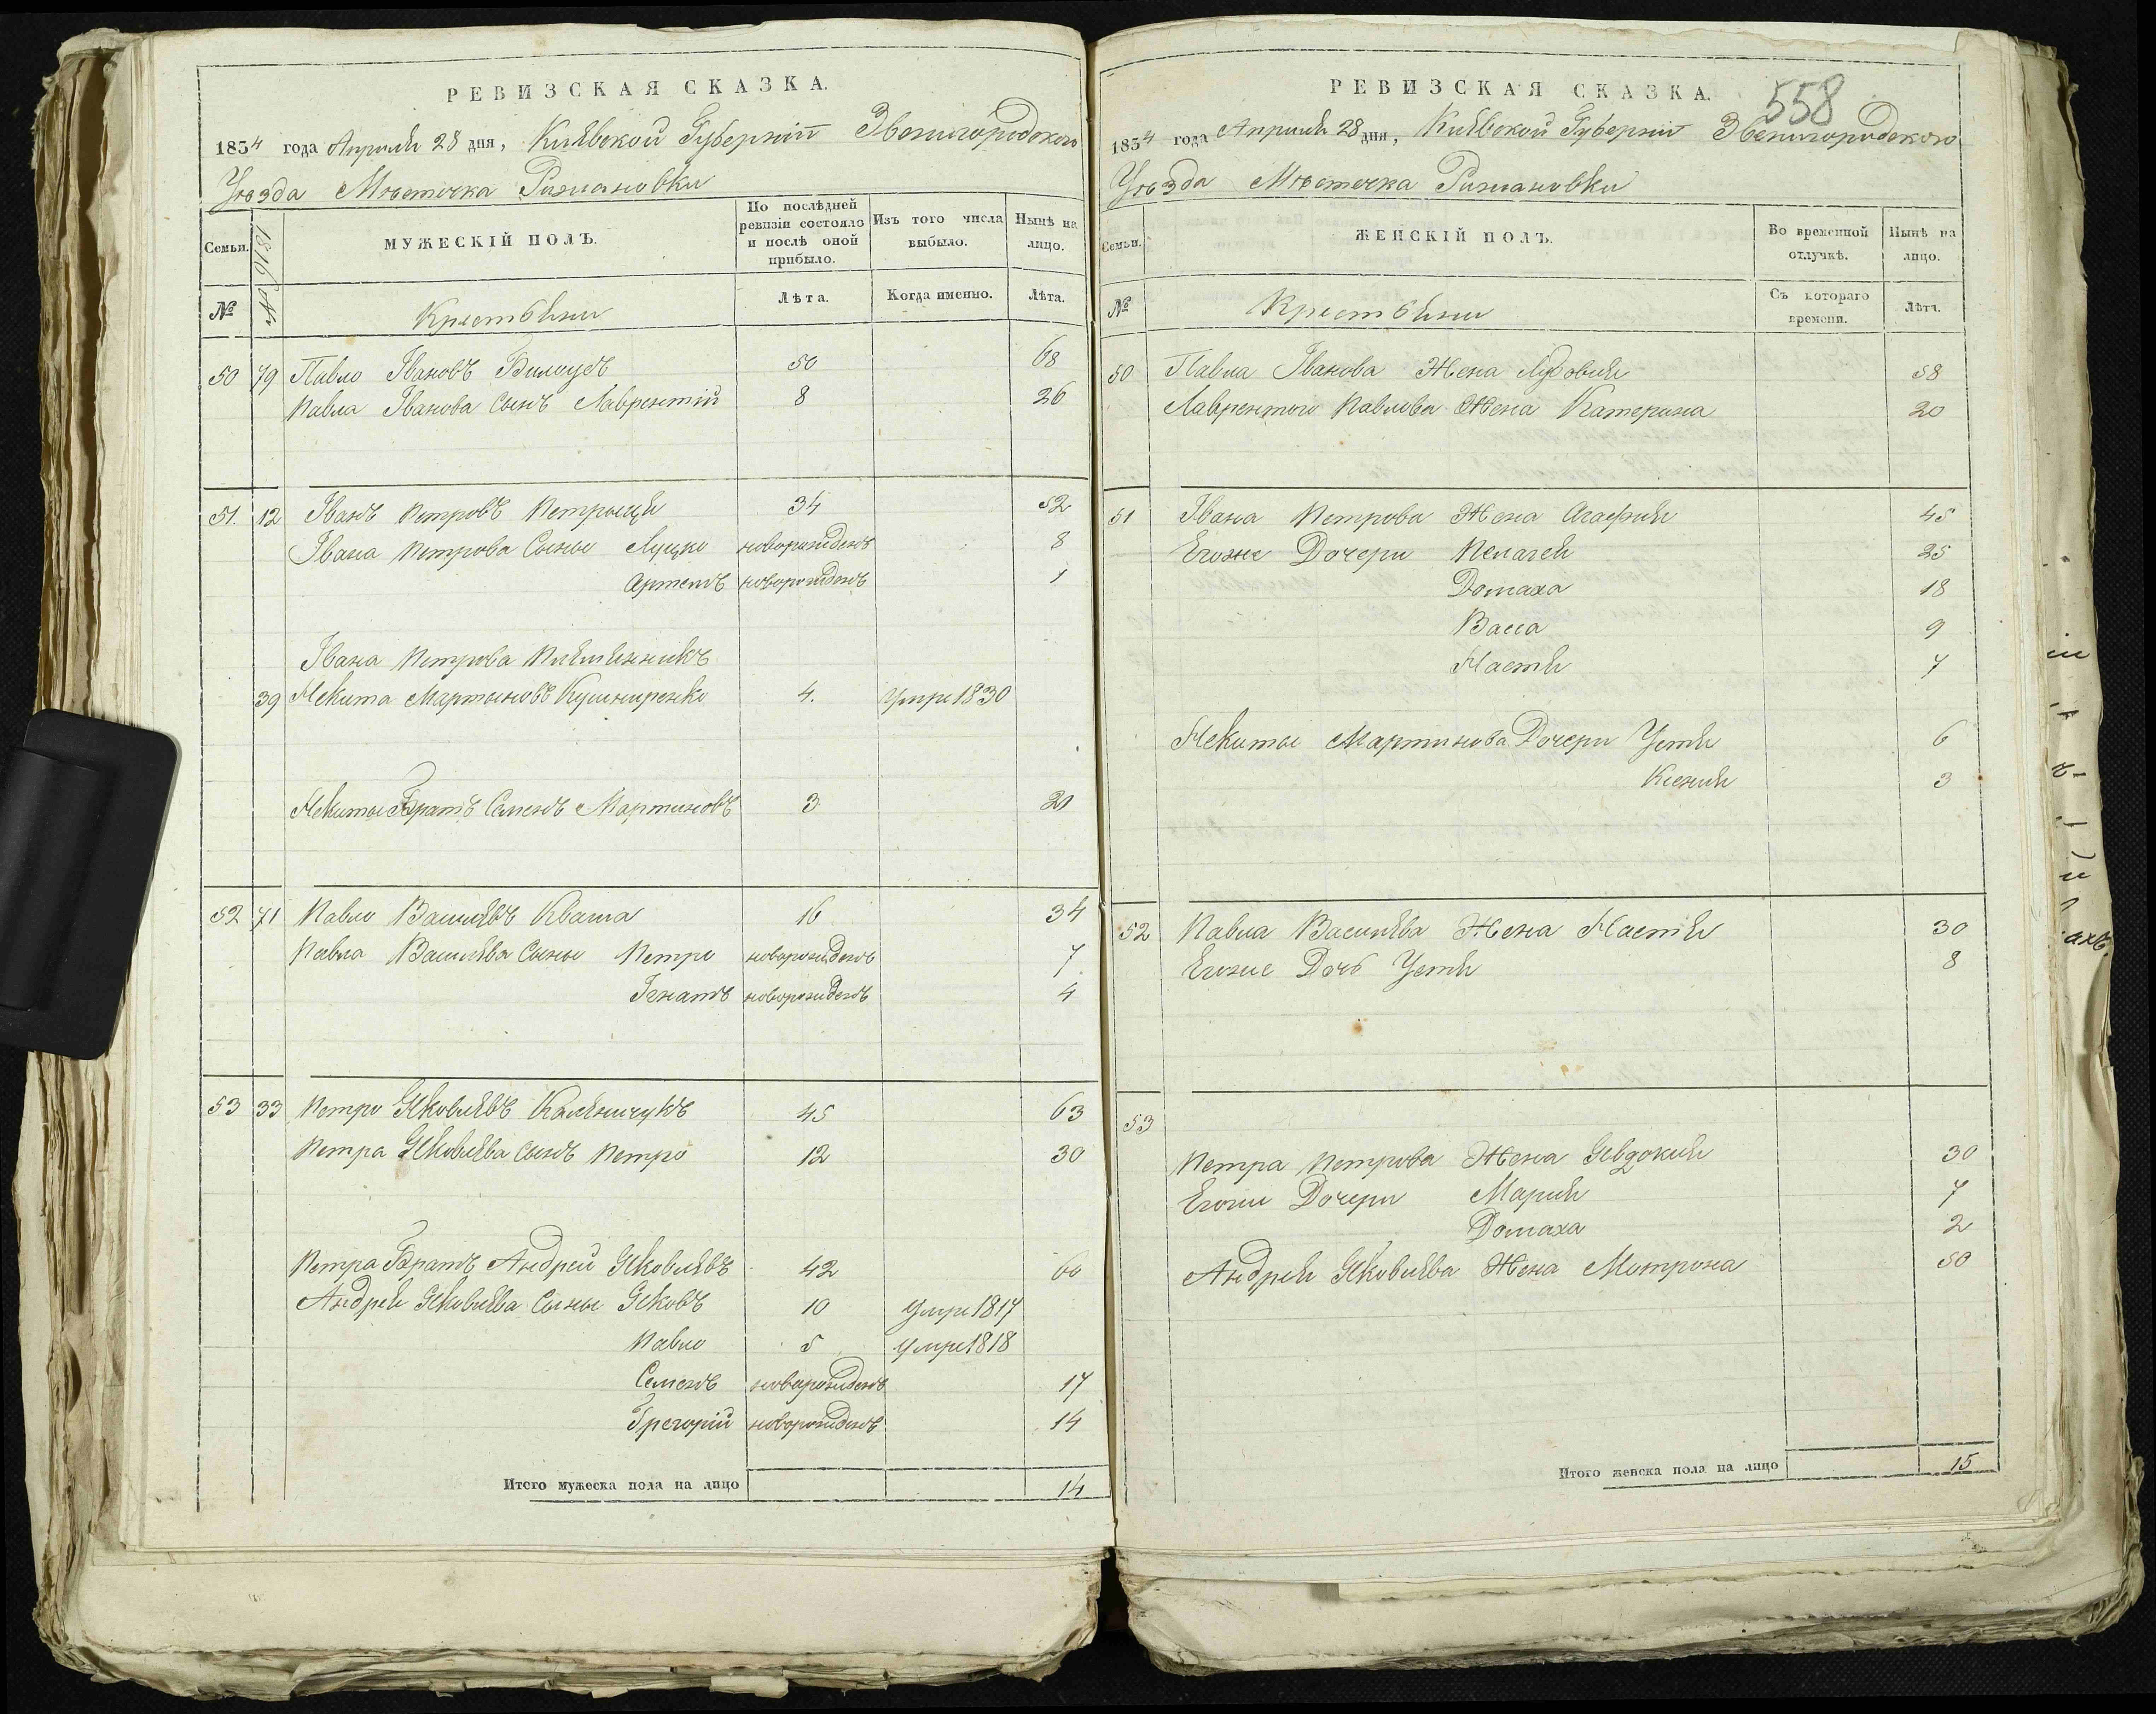 РЕВИЗСКАЯ СКАЗКА.
1834 года Апреля 28 дня, Кіевской Губерніи Звенигородского
Уезда Местечка Рижановки
Семьи.
1816 №
МУЖЕСКІЙ ПОЛЪ.
По послѣдней ревизіи состояло и послѣ оной прибыло.
Изъ того числа выбыло.
Нынѣ на лицо.
№
Крестьяни
Лѣта.
Когда именно.
Лѣта.
50 79 Павло Івановъ Билоусъ 50 68
Павла Іванова Сынъ Лаврентій 8 26
51. 12 Іванъ Петровъ Петрыця 34 52
Івана Петрова Сыны Луцко новорожденъ 8
Артемъ новорожденъ 1
Івана Петрова Племянникъ
39 Некита Мартыновъ Кушниренко 4. умре 1830
Некиты Братъ Семенъ Мартиновъ 3 21
52 71 Павло Василевъ Кваша 16 34
Павла Василева Сыны Петро новорожденъ 7
Ігнатъ новорожденъ 4
53 33 Петро Яковлевъ Каленичукъ 45 63
Петра Яковлева Сынъ Петро 12 30
Петра Братъ Андрей Яковлевъ 42 60
Андрея Яковлева Сыны Яковъ 10 умре 1817
Павло 5 умре 1818
Семенъ новорожденъ 17
Грегорій новорожденъ 14
Итого мужеска пола на лицо 14
558
РЕВИЗСКАЯ СКАЗКА.
1834 года Апреля 28 дня, Кіевской Губерніи Звенигородского
Уезда Местечка Рижановки
Семьи.
ЖЕНСКІЙ ПОЛЪ.
Во временной отлучкѣ.
Нынѣ на лицо.
№
Крестьяни
Съ котораго времени.
Лѣта.
50 Павла Іванова Жена Лудовия 58
Лаврентого Павлова Жена Катерина 20
51 Івана Петрова Жена Агафия 45
Егоже Дочери Пелагея 25
Домаха 18
Васса 9
Настя 7
Некиты Мартинова Дочери Устя 6
Ксения 3
52 Павла Василева Жена Настя 30
Егоже Дочь Устя 8
53
Петра Петрова Жена Явдокия 30
Егоже Дочери Мария 7
Домаха 2
Андрея Яковлева Жена Мотрона 50
Итого женска пола на лицо 15